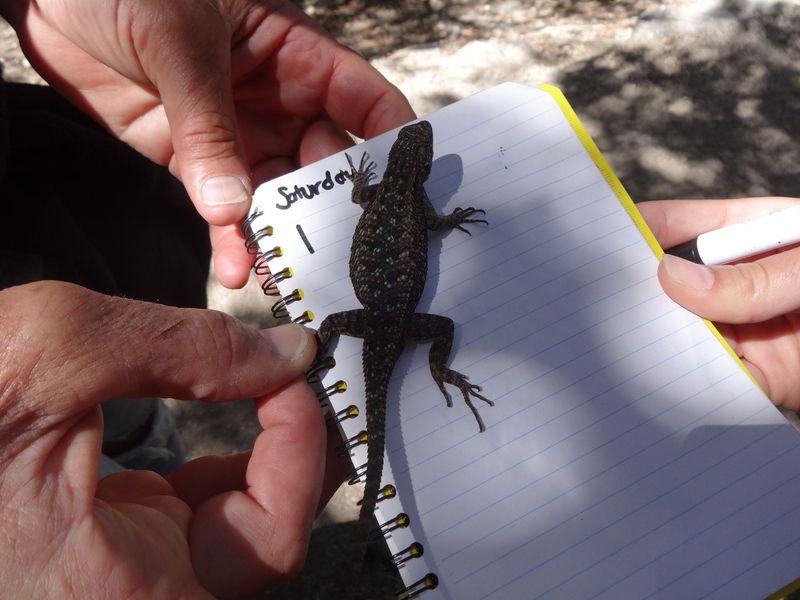 Saturday
1